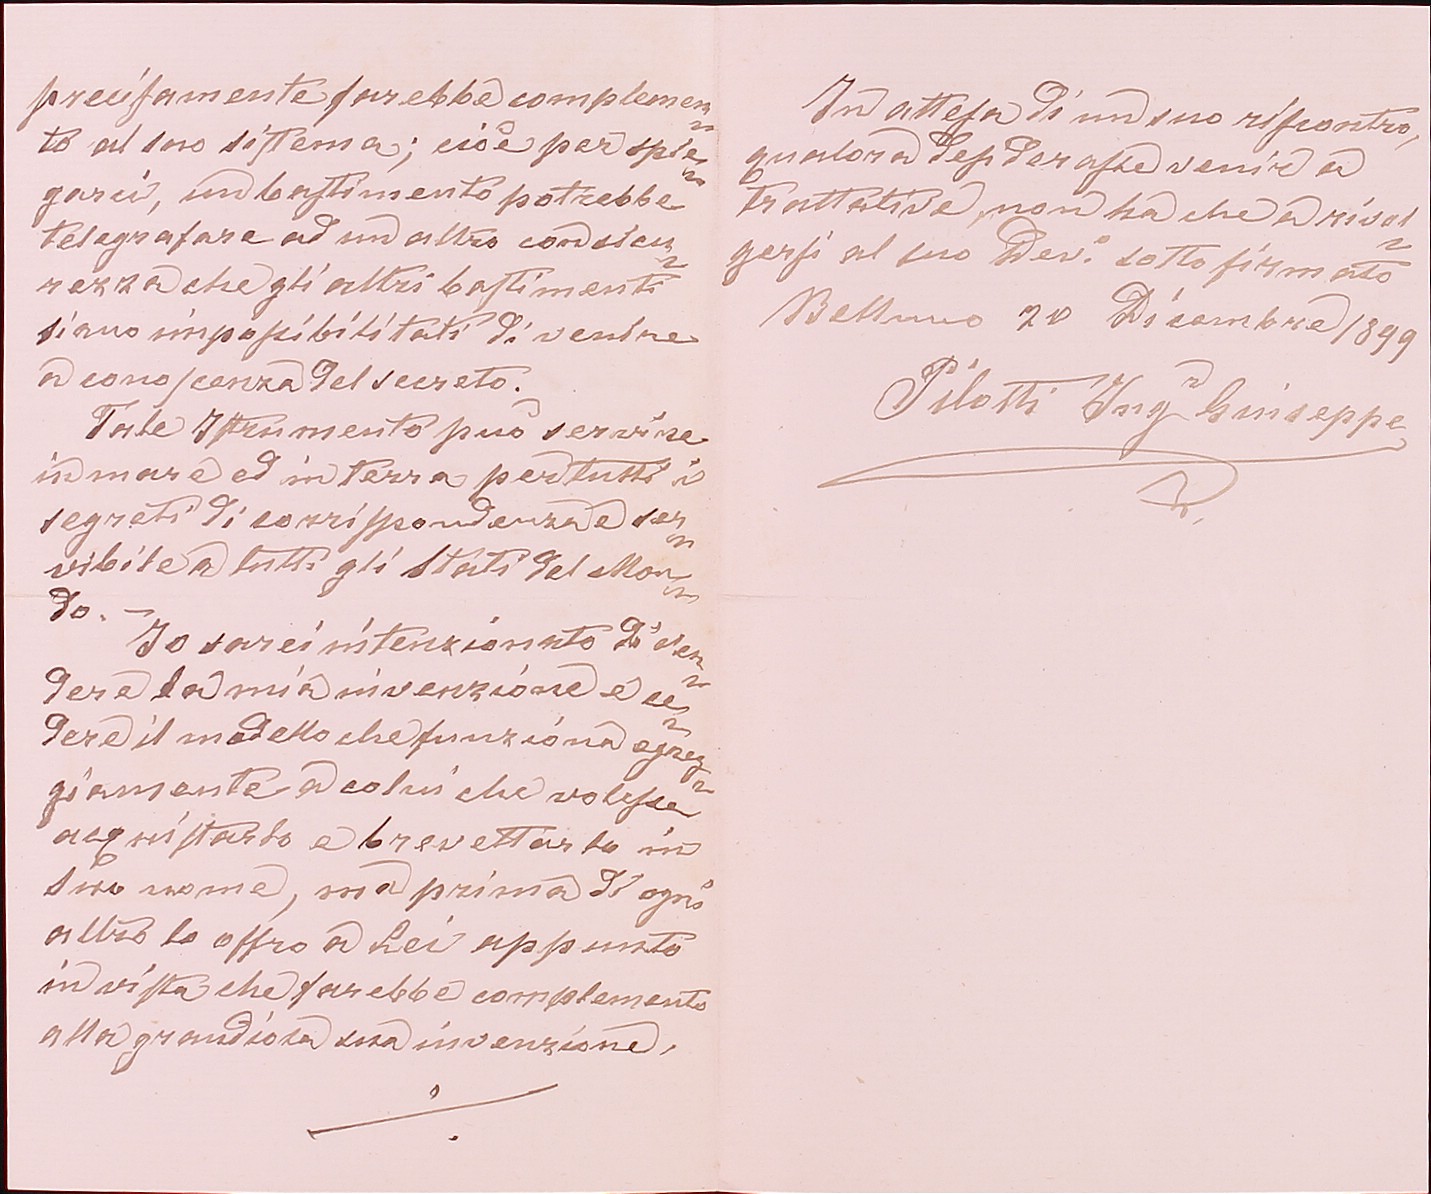 precisamente sarebbe complemen=
to al suo sistema; cioè per spie=
garci, un bastimento potrebbe
telegrafare ad un altro con sicu=
rezza che gli altri bastimenti
siano impossibilitati di venire
a conoscenza del secreto.
Tale Istrumento può servire
in mare ed in terra per tutti i
segreti di corrispondenza e ser=
vibile a tutti gli Stati del Mon=
do. —
Io sarei intenzionato di ven=
dere la mia invenzione e ce=
dere il modello che funziona egreg=
giamente a colui che volesse
acquistarlo e brevettarlo in
suo nome, ma prima di ogni
altro lo offro a Lei appunto
in vista che sarebbe complemento
alla grandiosa sua invenzione,
./.
In attesa di un suo riscontro,
qualora desiderasse venire a
trattative, non ha che a rivol=
gersi al suo Dev.o sottofirmato
Belluno 20 Dicembre 1899
Pilotti Ing.r Giuseppe